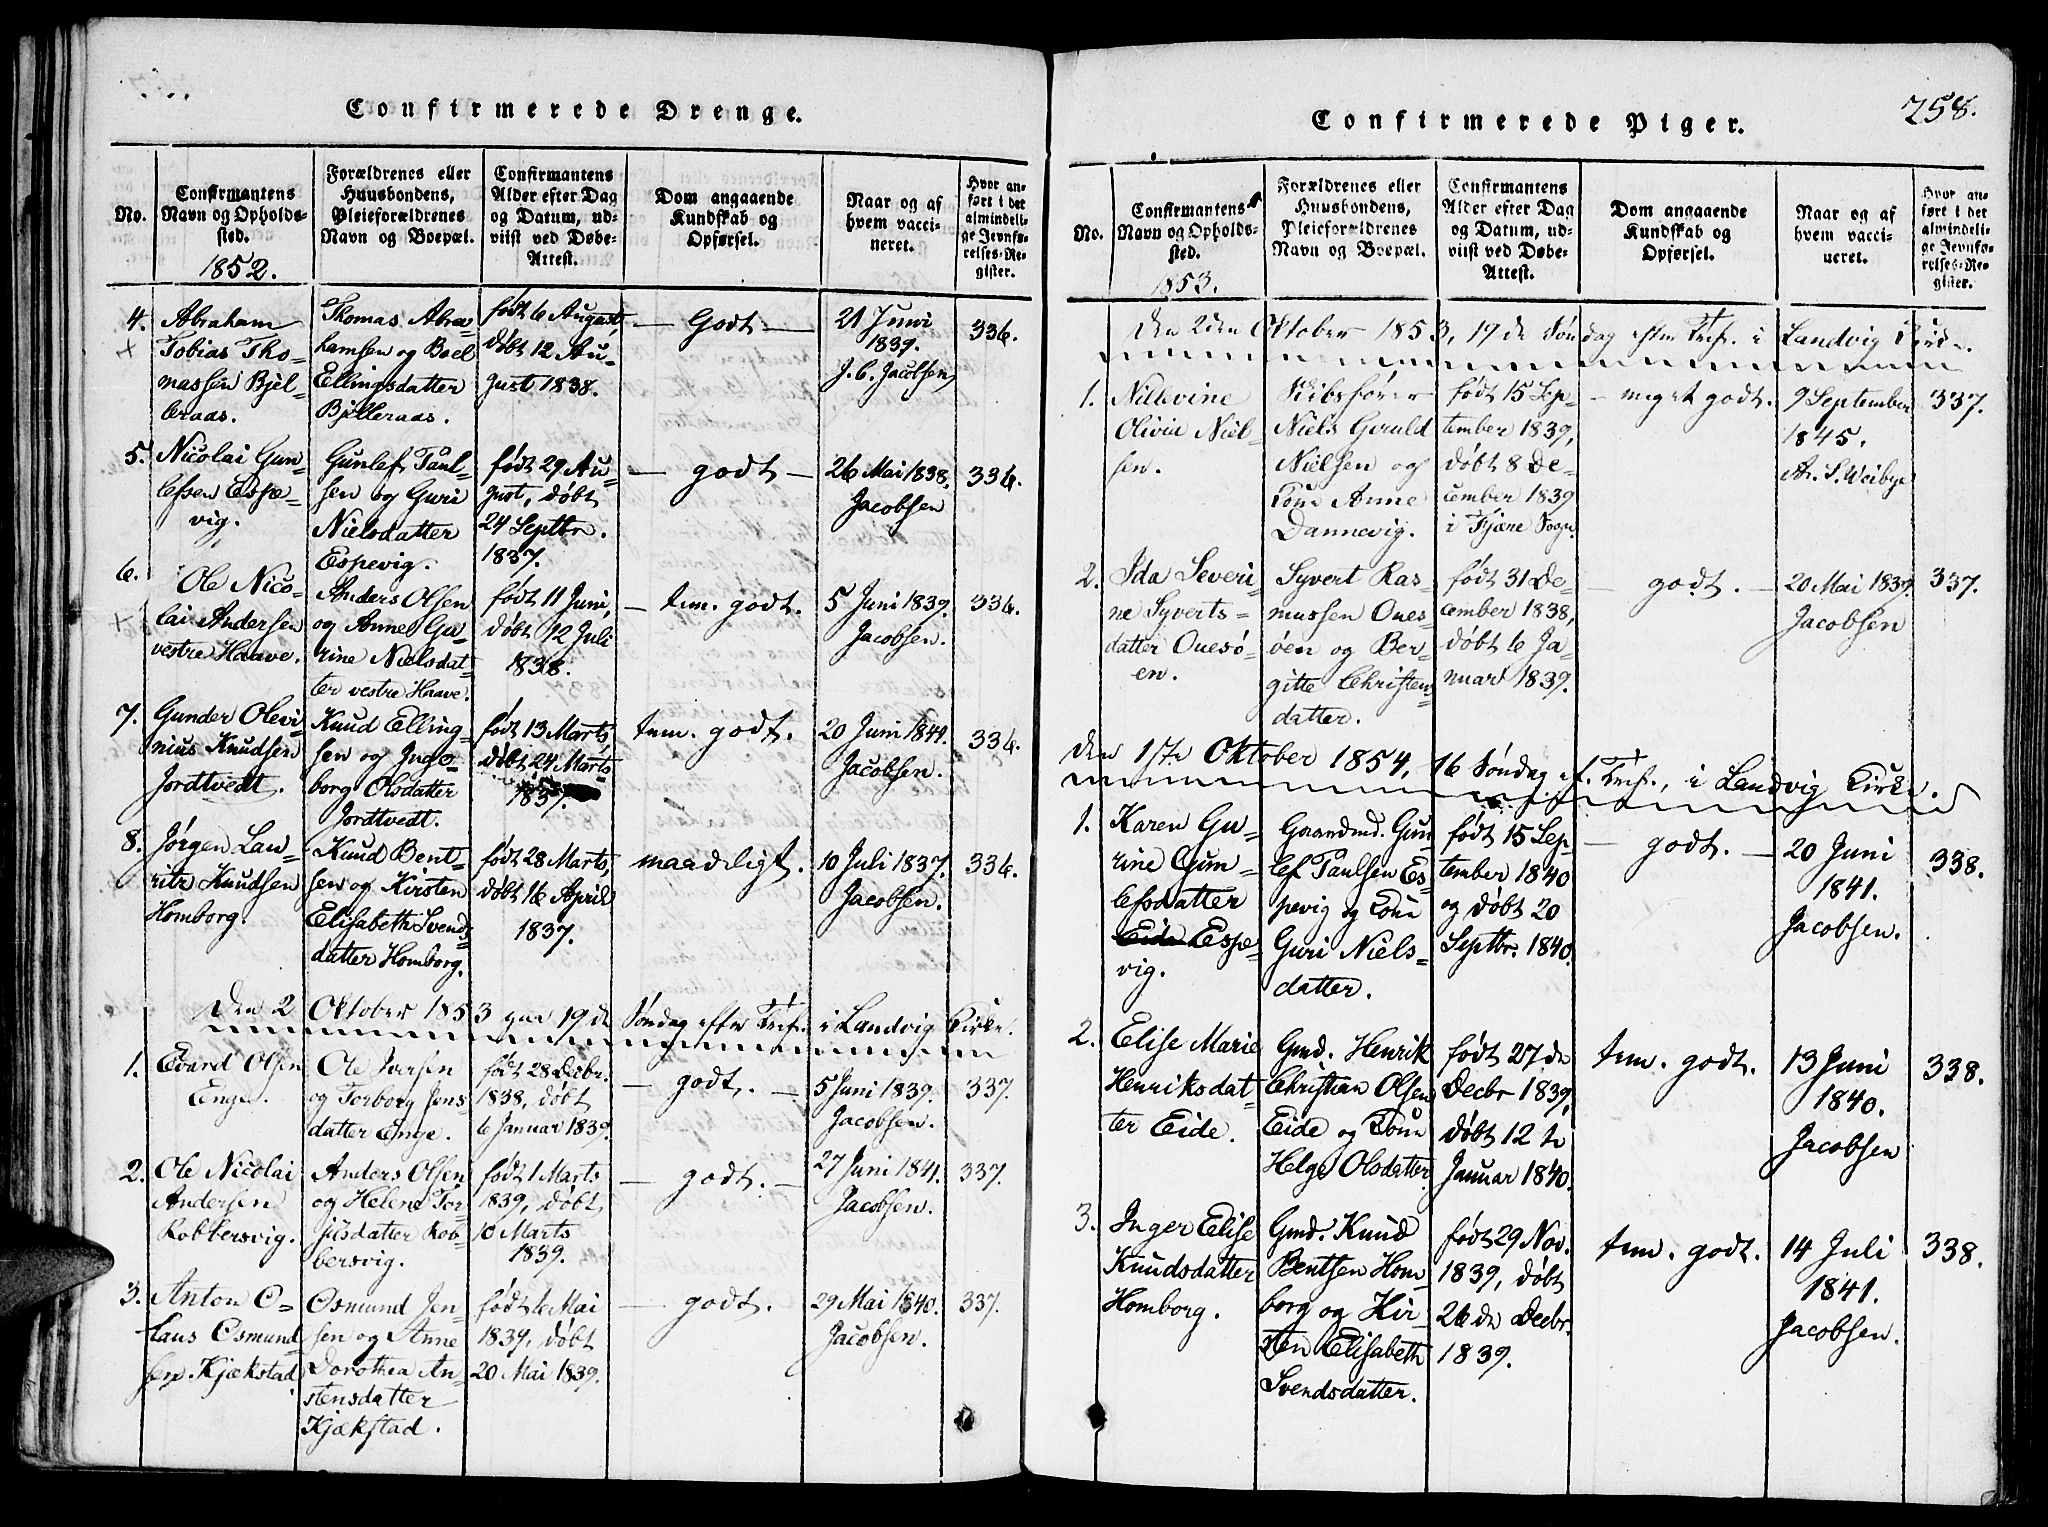 Confirmerede Drenge.
No.
Confirmantens
Navn og Opholds-
sted.
1852.
Forældrenes eller
Huusbondens,
Pleieforældrenes
Navn og Boepæl.
Confirmantens
Alder efter Dag
og Datum, ud-
viist ved Døbe-
Attest.
Dom angaaende
Kundskab og
Opførsel.
Naar og af
hvem vacci-
neret.
Hvor an-
ført i det
almindeli-
ge Jevnfø-
relses-Re-
gister.
4.
Abraham
Tobias Tho-
massen Bjel-
leraas.
Thomas Abra-
hamsen og Boel
Ellingsdatter
Bjelleraas.
født 6 August,
døbt 12 Au-
gust 1838.
— Godt —
21 Juni
1839.
J. C. Jacobsen
336.
5.
Nicolai Gun-
lefsen Espe-
vig.
Gunlef Paul-
sen og Guri
Nielsdatter
Espevig.
født 29 Au-
gust, døbt
24 Septbr.
1837.
— godt —
26 Mai 1838.
Jacobsen
336.
6.
Ole Nico-
lai Andersen
vestre Haave.
Anders Olsen
og Anne Gu-
rine Nielsdat-
ter vestre Haave.
født 11 Juni,
døbt 12 Juli
1838.
— tem. godt.
5 Juni 1839.
Jacobsen.
336.
7.
Gunder Olevi-
nius Knudsen
Jordtvedt.
Knud Elling-
sen og Inge-
borg Olsdatter
Jordtvedt.
født 13 Marts,
døbt 24 Marts
1837.
tem. godt.
20 Juni 1841.
Jacobsen.
336.
8.
Jørgen Lau-
ritz Knudsen
Homborg.
Knud Bent-
sen og Kirsten
Elisabeth Svends-
datter Homborg.
født 28 Marts,
døbt 16 April
1837.
maadeligt.
10 Juli 1837.
Jacobsen.
336.
Den 2 Oktober 1853 19de Søndag efter Tref. i Landvig Kirke.
1.
Evard Olsen
Enge.
Ole Iversen
og Torborg Jens
datter Enge.
født 28 Decbr.
1838, døbt
6 Januar 1839.
— godt. —
5 Juni 1839.
Jacobsen.
337.
2.
Ole Nicolai
Andersen
Robbersvig.
Anders Olsen
og Helene Tor-
jusdatter Rob-
bersvig.
født 1 Marts
1839, døbt
10 Marts
1839.
— godt. —
27 Juni 1841.
Jacobsen.
337.
3.
Anton O-
laus Osmund
sen Kjækstad
Osmund Jen-
sen og Anne
Dorothea An-
stensdatter
Kjækstad.
født 6 Mai
1839, døbt
20 Mai 1839.
— godt.
29 Mai 1840.
Jacobsen.
337.
258.
Confirmerede Piger.
No.
Confirmantens
Navn og Opholds-
sted.
1853.
Forældrenes eller
Huusbondens,
Pleieforældrenes
Navn og Boepæl.
Confirmantens
Alder efter Dag
og Datum, ud-
viist ved Døbe-
Attest.
Dom angaaende
Kundskab og
Opførsel.
Naar og af
hvem vacci-
neret.
Hvor an-
ført i det
almindeli-
ge Jevnfø-
relses-Re-
gister.
Den 2den Oktober 1853, 19de Søndag efter Tref. i Landvig Kirke.
1.
Nillevine
Olivia Niel-
sen.
Skibsfører
Niels
Nielsen og
Kone Anne
Dannevig.
født 15 Sep-
tember 1839,
døbt 8 De-
cember 1839
i Fjære Sogn.
— meget godt.
9 September
1845.
337.
2.
Ida Severi-
ne Syverts-
datter Ouesö-
en.
Syvert Ras-
mussen Oues-
öen og Ber-
gitte Christens-
datter.
født 31 De-
cember 1838,
døbt 6 Ja-
nuar 1839.
— godt. —
20 Mai 1839.
Jacobsen
337.
Den 1ste Oktober 1854, 16 Søndag ef. Tref., i Landvig Kirke.
1.
Karen Gu-
rine Gun-
lefsdatter
Espe-
vig.
Gaardmd. Gun-
lef Paulsen Es-
pevig og Kone
Guri Niels-
datter.
født 15 Sep-
tember 1840
og døbt 20
Septbr. 1840.
— godt. —
20 Juni
1841.
Jacobsen.
338.
2.
Elise Marie
Henriksdat-
ter Eide.
Gmd. Henrik
Christian Olsen
Eide og Kone
Helge Olsdatter.
født 27de
Decbr 1839,
døbt 12te
Januar 1840.
tem. godt.
13 Juni
1840.
Jacobsen
338.
3.
Inger Elise
Knudsdatter
Homborg.
Gmd. Knud
Bentsen Hom-
borg og Kir-
sten Elisabeth
Svendsdatter.
født 29 Nov.
1839, døbt
26de Decbr.
1839.
tem. godt.
14 Juli
1841.
Jacobsen.
338.